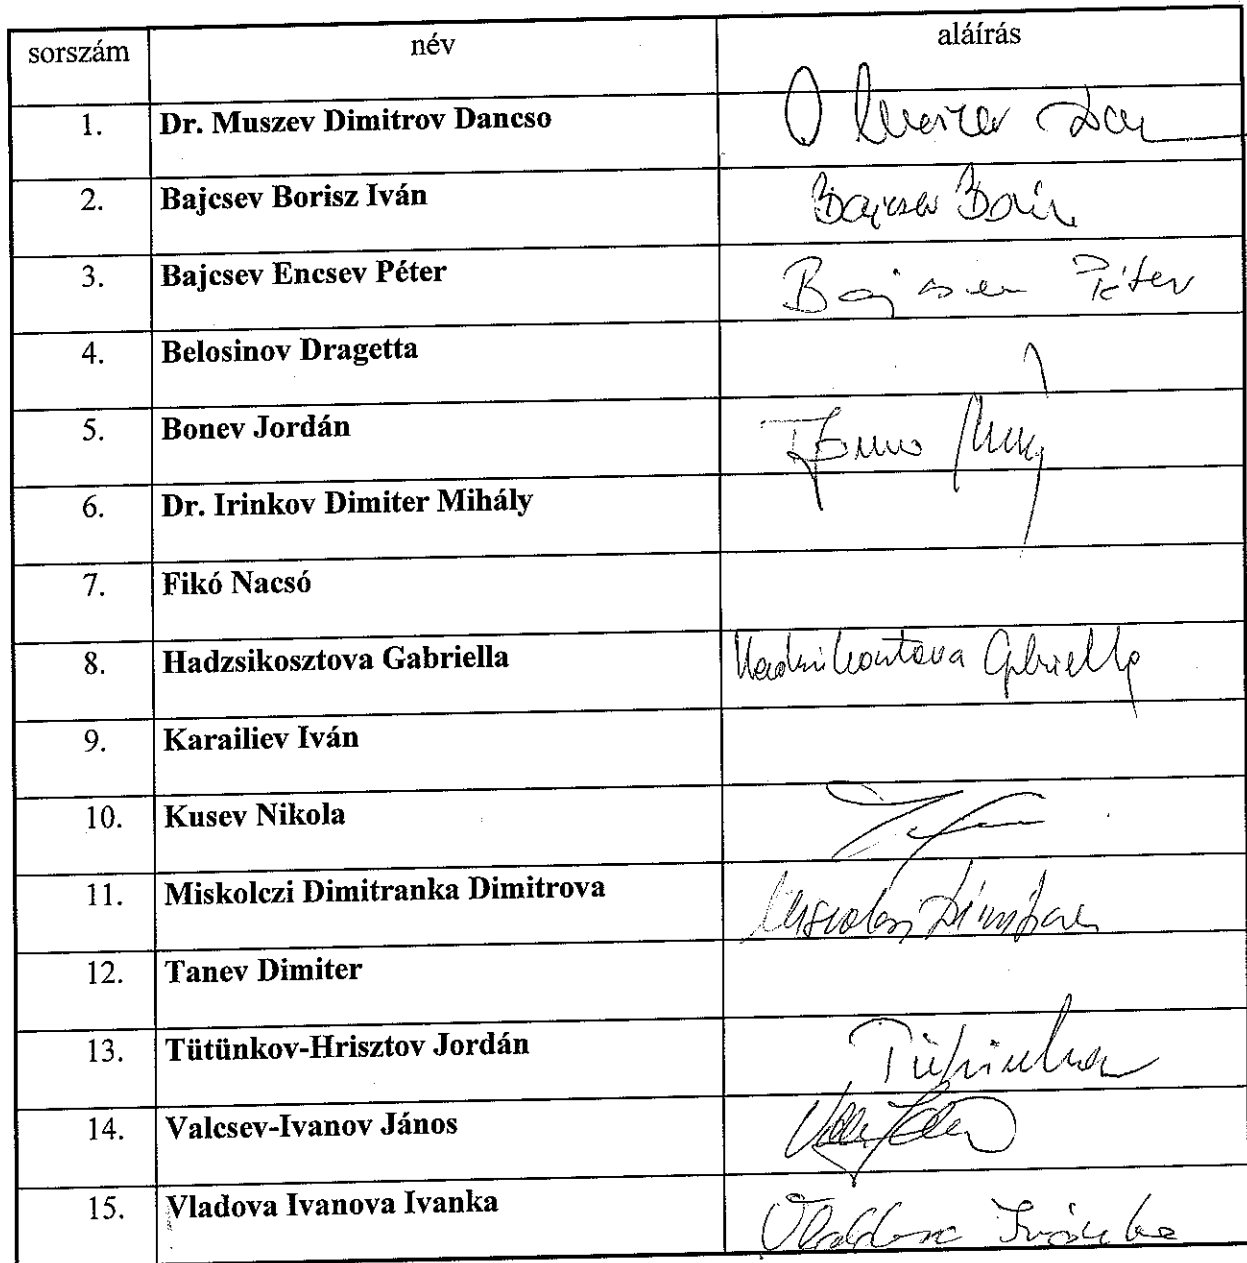 sorszám név aláírás
1. Dr. Muszev Dimitrov Dancso
2. Bajcsev Borisz Iván Bajcsev
3. Bajcsev Encsev Péter Bajcsev Péter
4. Belosinov Dragetta
5. Bonev Jordán
6. Dr. Irinkov Dimiter Mihály
7. Fikó Nacsó
8. Hadzsikosztova Gabriella Hadzsikosztova Gabriella
9. Karailiev Iván
10. Kusev Nikola
11. Miskolczi Dimitranka Dimitrova
12. Tanev Dimiter
13. Tütünkov-Hrisztov Jordán
14. Valcsev-Ivanov János
15. Vladova Ivanova Ivanka